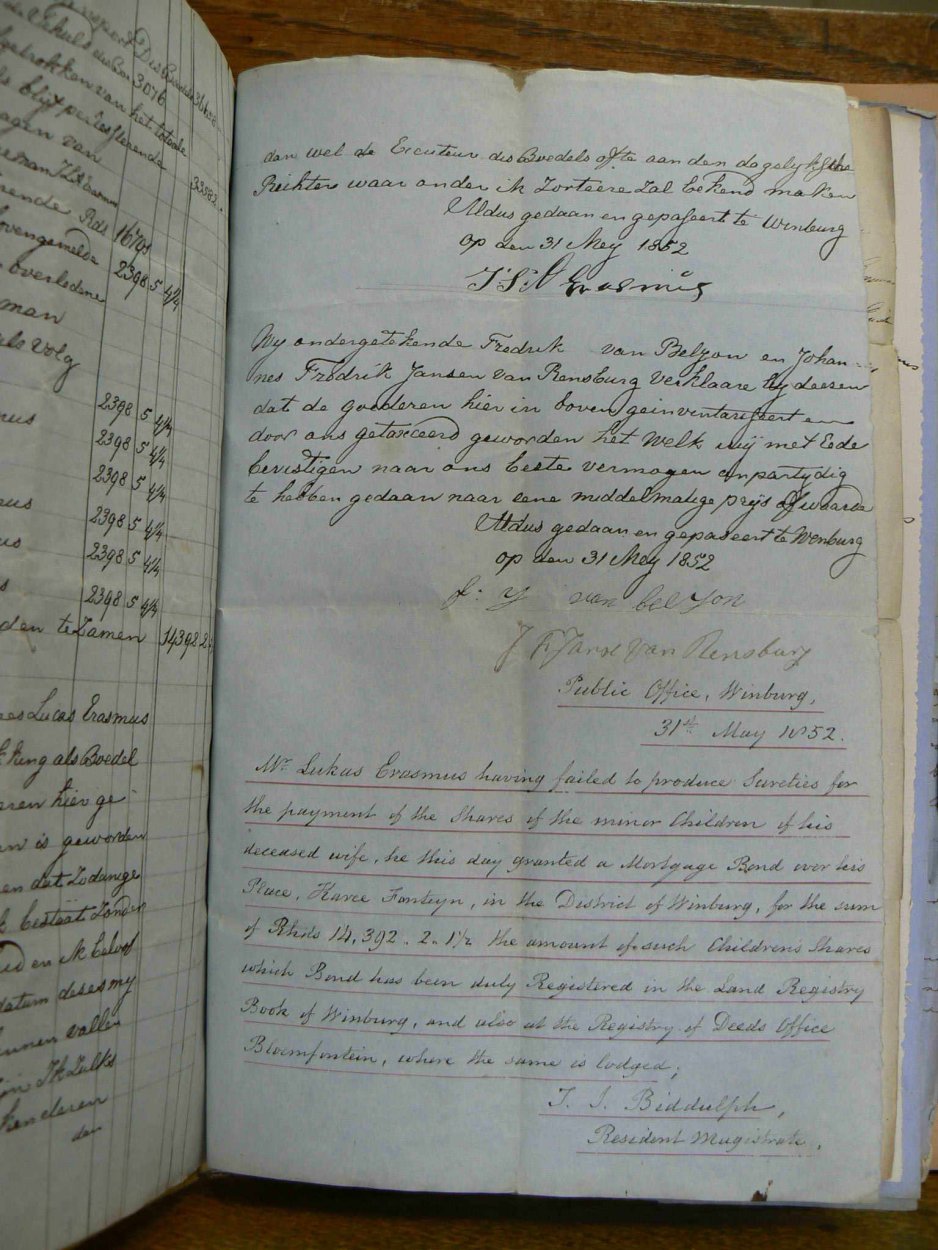 de Schuld des Boe 3076
betrokken van het totale
blijft per resteerende 33582
agen van
rende Rds 16791
bovengemelde 2398 5 4/4
overledene
man
ale volg
2398 5 4/4
nus 2398 5 4/4
2398 5 4/4
nus 2398 5 4/4
us 2398 5 4/4
s 2398 5 4/4
den te Zamen 14392 2
es Lucas Erasmus
king als Boedel
eren hier ge
n is geworden
en dat Zodanige
k bestaat Zonder
en ik beloof
datum deses my
kunnen vallen
Zulks
den
dan wel de Executeur des Boedels ofte aan den dagelyksche
Richter waar onder ik Zorteere Zal bekend maken
Aldus gedaan en gepaseert te Winburg
op den 31 Mey 1852
Erasmus
Wy ondergetekende Fredrik van Belzon en Johan-
nes Fredrik Jansen van Rensburg verklaare by deesen
dat de goederen hier in boven geinventariseert en
door ons getaxeerd geworden het Welk wij met Eede
bevistigen naar ons beste vermogen onpartydig
te hebben gedaan naar eene middelmatige prijs of waarde
Aldus gedaan en gepaseert te Wenburg
op den 31 May 1852
f: y van bel Jon
J F Janse Van Rensburg
Public Office, Winburg,
31st May 1852.
Mr Lukas Erasmus having failed to produce Sureties for
the payment of the Shares of the minor Children of his
deceased wife, he this day granted a Mortgage Bond over his
Place, Karee Fonteyn, in the District of Winburg, for the sum
of Rhds 14,392. 2. 1½ the amount of such Childrens Shares
which Bond has been duly Registered in the Land Registry
Book of Winburg, and also at the Registry of Deeds Office
Bloemfontein, where the same is lodged;
T. J. Biddulph,
Resident Magistrate.